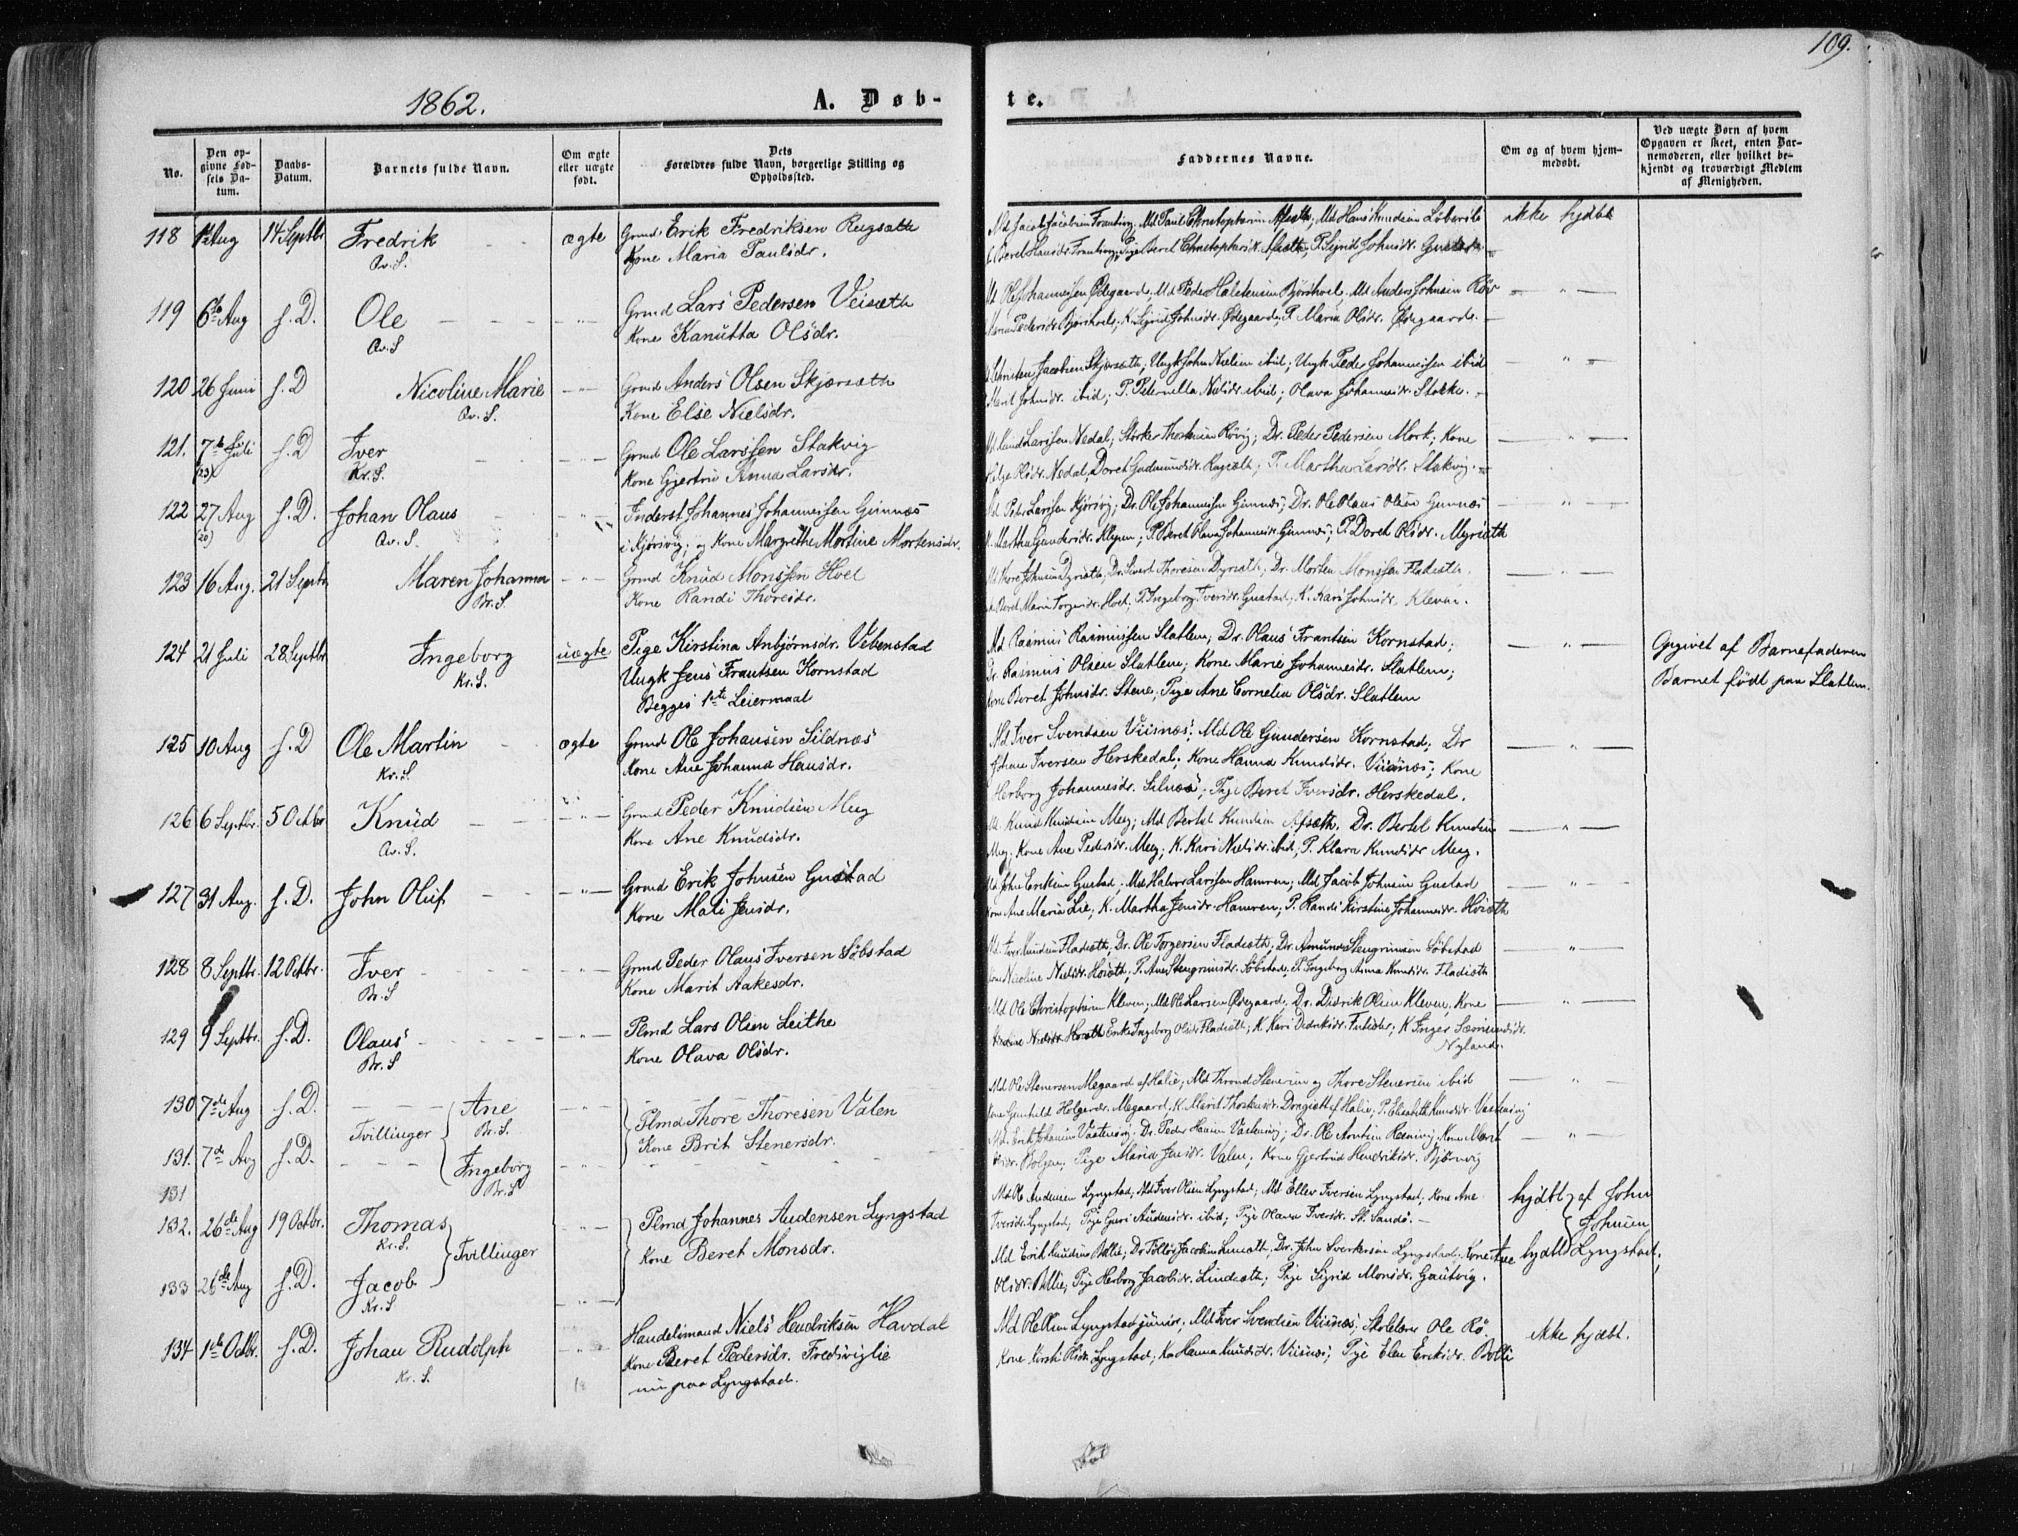 109.
1862.
A. Døb-
te.
No.
Den op-
givne Fød-
sels Da-
tum.
Daabs-
Datum.
Barnets fulde Navn.
Om ægte
eller uægte
født.
Dets
Forældres fulde Navn, borgerlige Stilling og
Opholdssted.
Faddernes Navne.
Om og af hvem hjem-
medøbt.
Ved uægte Børn af hvem
Opgaven er skeet, enten Bar-
nemoderen, eller hvilket be-
kjendt og troværdigt Medlem
af Menigheden.
118 Aug 14 Septbr. Fredrik ægte Grmd. Erik Fredriksen Rugsæth
Av. S. Kone Maria Paulsdr.
ikke hjdbt
119 6te Aug s. D. Ole Grmd Lars Pedersen Veisæth
Av. S Kone Kanutta Olsdr.
Kone Pedersdr. Bjørshoel; K. Sigrid Johnsdr. Ødegaard; P. Maria Olsdr. Ødegaard.
120 26 Juni s. D Nicoline Marie Grmd Anders Olsen Skjørsæth
Av. S. Kone Else Nielsdr.
Jacobsen Skjørsæth; Ungk John Nielsen ibid; Ungk Peder Johannessen ibid
Marit Johnsdr. ibid; P. Peternilla Nielsdr. ibid; Olava Johannesdr. Stokke.
121. 7de Juli s. D Iver Grmd Ole Larssen Stakvig
(23) Kr. S. Kone Gjertru Anna Larsdr.
Larssen Nedal; Størker Thorsen Røvig; Dr. Peder Pedersen Mork; Kone
Olsdr. Nedal, Doret Gudmundsdr. Rugsæth; P. Martha Larsdr. Stakvig.
122 27 Aug s. D. Johan Olaus Inderst Johannes Johannessen Gimnæs
(20) Av. S. i Kjørsvig; og Kone Margrethe Mortine Mortensdr.
Md Peter Larssen Kjørsvig; Dr. Ole Johannessen Gimnæs; Dr. Ole Olaus Olsen Gimnæs
K. Martha Gundersdr. Klepen; P. Beret Olava Johannesdr. Gimnæs; P. Doret Olsdr. Myrsæth
123 16 Aug. 21 Septbr. Maren Johanna Grmd Knud Monssen Hoel
Br. S. Kone Randi Thoresdr.
Md Thore Johnsen Dyrsæth, Dr. Sivert Thoresen Dyrsæth; Dr. Morten Monssen Fladsæth.
Beret Marie Torgersdr. Hoel; P. Ingeborg Iversdr. Gustad; K. Kari Johnsdr. Kleven.
124 21 Juli 28 Septbr Ingeborg uægte Pige Kirstina Anbjørnsdr. Vebenstad
Kr. S. Ungk Jens Frantsen Kornstad
Begges 1ste Leiermaal
Md Rasmus Rasmussen Slatlem; Dr. Olaus Frantsen Kornstad;
Dr. Rasmus Olsen Slatlem; Kone Marie Johannesdr. Slatlem;
Kone Beret Johnsdr. Stene; Pige Ane Cornelia Olsdr. Slatlem
Opgivet af Barnefaderen
Barnet født paa Slatlem.
125 10 Aug s. D Ole Martin ægte Grmd Ole Johansen Sildnæs
Kr. S. Kone Ane Johanna Hansdr.
Md Iver Svendsen Viisnæs; Md Ole Gundersen Kornstad; Dr
Johan Iversen Herskedal; Kone Hanna Knudsdr. Viisnæs; Kone
Herborg Johannesdr. Silnæs; Pige Beret Iversdr. Herskedal.
126 6 Septbr. 5 Octbr Knud Grmd Peder Knudsen Meeg
Av. S. Kone Ane Knudsdr.
Md. Knud Knudsen Meeg; Md Bertel Knudsen Afsæth. Dr. Bertel Knudsen
Meeg; Kone Ane Pedersdr. Meeg; K. Kari Nielsdr. ibid, P. Klara Knudsdr Meeg.
127 31 Aug. s. D. John Oluf Grmd Erik Johnsen Gustad
Kone Mali Jensdr.
Md John Eriksen Gustad; Md Halvor Larssen Hamren; Md Jacob Johnsen Gustad
Kone Ane Maria Lie; K. Martha Jensdr. Hamren; P. Randi Kirstine Johannesdr. Høisæth
128 8 Septbr. 12 Octbr. Iver Grmd Peder Olaus Iversen Søbstad
Br. S Kone Marit Aakesdr.
Md Iver Knudsen Fladsæth; Dr. Ole Torgersen Fladsæth; Dr. Amund Stengrimsen Søbstad
Kone Nicoline Nielsdr. Høisæth; P. Ane Stengrimsdr. Søbstad; P. Ingeborg Anna Knudsdr. Fladsæth
129 9 Septbr. s. D. Olaus Plmd Lars Olsen Leithe
Br. S Kone Olava Olsdr.
Md Ole Christophersen Kleven; Md Ole Larsen Ødegaard, Dr. Didrik Olsen Kleven, Kone
Ingeborg Olsdr. Fladsæth; K. Kari Didriksdr. ; K Inger Sæmundsdr.
Nyland.
130 7de Aug s. D. Ane Plmd Thore Thoresen Valen
Tvillinger Br. S. Kone Brit Stenersdr.
Md Ole Stenersen Megaard af Halse; Md Thrond Stenersen og Thore Stenersen ibid
Kone Gunhild Holgersdr. Megaard, K. Marit Thorksdr. af Halse; P. Elisabeth Knudsdr. Vasteving
131. 7de Aug s. D. Ingeborg
Br. S
Md. Erik Johansen Vastenvig; Dr. Peder Hansen Vastenvig; Dr. Ole Arntsen Hennvig; Kone Marit
Bolgen; Pige Maria Jensdr. Valen; Kone Gjertrud Hendriksdr. Bjørnvig
131
132. 26de Aug 19 Octbr. Thomas Plmd Johannes Audensen Lyngstad
Kr. S. Tvillinger Kone Beret Monsdr.
Md Ole Audensen Lyngstad, Md Iver Olsen Lyngstad; Md Ellev Iversen Lyngstad; Kone Ane
Iversdr. Lyngstad, Pige Guri Audensdr. ibid; Pige Olava Iversdr. St. Sandø.
hjdbt af John
Johnsen
133 26de Aug s. D. Jacob
Kr. S
Md Erik Knudsen Bollie; Dr Tollev Jacobsen Linsæth; Dr. John Sverkersen Lyngstad. Kone Ane
Olsdr. Bollie; Pige Herborg Jacobsdr. Lindsæth; Pige Sigrid Monsdr. Gautvig.
hjdbt Lyngstad,
134 1ste Octbr. s. D. Johan Rudolph Handelsmand Niels Hendriksen Havdal
Kr. S. Kone Beret Pedersdr. Fredsviglie
nu paa Lyngstad.
Md Ole Olsen Lyngstad junior; Md Iver Svendsen Viisnæs; Skolelærer Ole Rø.
Kone Kirsti Olsdr. Lyngstad; K. Hanna Knudsdr. Viisnæs; Pige Elen Eriksdr. Bollie
ikke hjdbt.